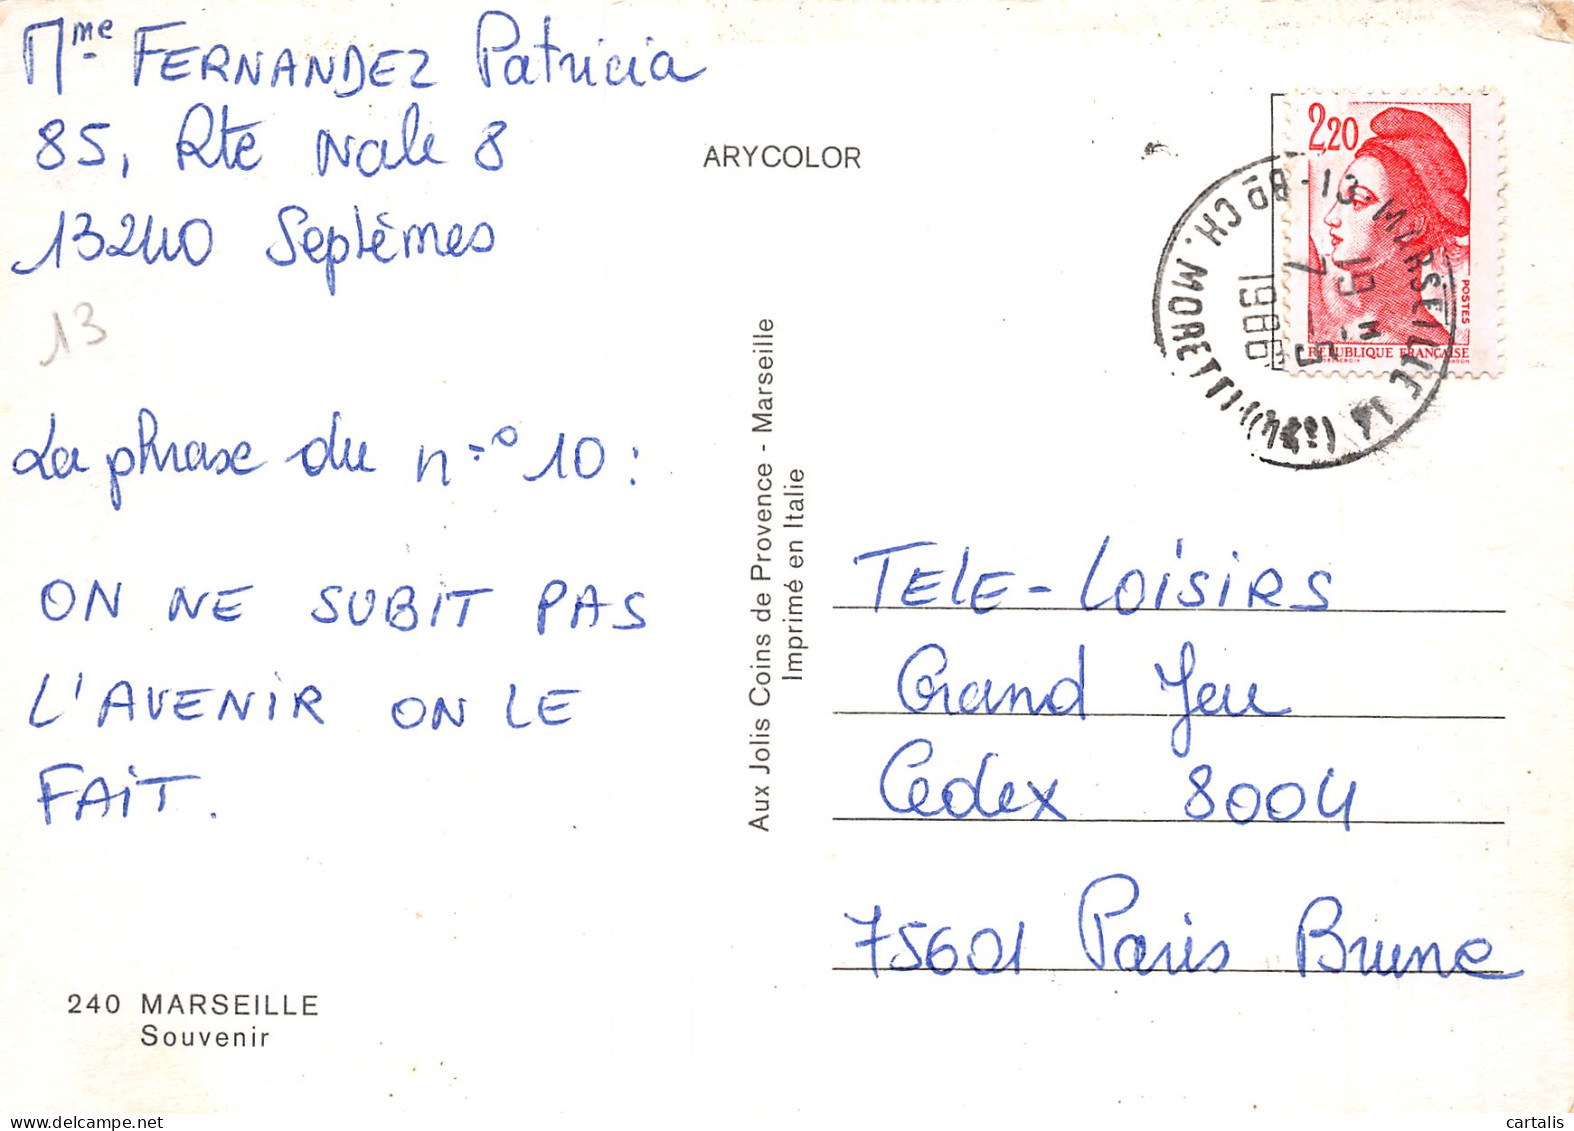 Mme FERNANDEZ Patricia
85, Rte Nale 8
13240 Septèmes
13
La phrase du n° 10 :
ON NE SUBIT PAS
L'AVENIR ON LE
FAIT.
240 MARSEILLE
Souvenir
ARYCOLOR
Aux Jolis Coins de Provence - Marseille
Imprimé en Italie
2,20
POSTES
REPUBLIQUE FRANÇAISE
13 - MARSEILLE 14
Bd CH. MORETTI
19 H
7 5
1986
TELE-LOISIRS
Grand Jeu
Cedex 8004
75601 Paris Brune
cartalis
www.delcampe.net